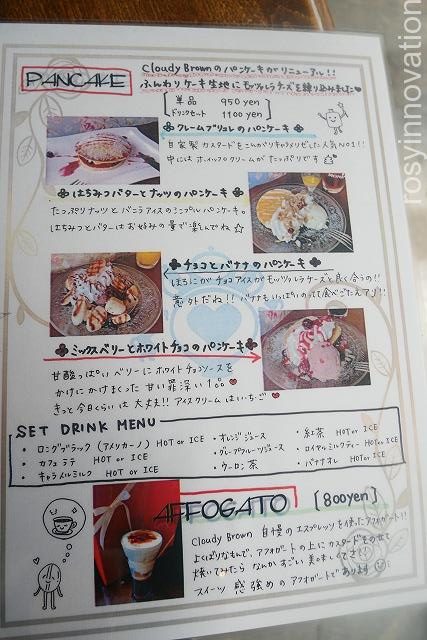 Cloudy Brownのパンケーキがリニューアル!!
PANCAKE
ふんわりケーキ生地にモッツァレラチーズを練り込みました♥
単品 950yen
ドリンクセット 1100yen
クレームブリュレのパンケーキ
自家製カスタードをこんがりキャラメリゼした人気No1!!
中にはホイップクリームがたっぷりです
はちみつバターとナッツのパンケーキ
たっぷりナッツとバニラアイスのシンプルパンケーキ。
はちみつとバターはお好みの量で楽しんでね☆
チョコとバナナのパンケーキ
ほろにがチョコアイスがモッツァレラチーズと良く合うの!!
意外だね!! バナナもいっぱいのって食べごたえアリ!!
ミックスベリーとホワイトチョコのパンケーキ
甘酸っぱいベリーにホワイトチョコソースを
かけにかけまくった甘い罪深い1品♥
きっと今日くらいは大丈夫!! アイスクリームはいちご♥
SET DRINK MENU
・ロングブラック (アメリカーノ) HOT or ICE
・カフェラテ HOT or ICE
・キャラメルミルク HOT or ICE
・オレンジジュース
・グレープフルーツジュース
・ウーロン茶
・紅茶 HOT or ICE
・ロイヤルミルクティー HOT or ICE
・バナナオレ HOT or ICE
AFFOGATO [800yen]
Cloudy Brown 自慢のエスプレッソを使ったアフォガート!!
よくばりなもんで、アフォガートの上にカスタードをのせて
焼いてみたらなんかすごい美味しくてさ!!
スイーツ感強めのアフォガートであります
rosyinnovation